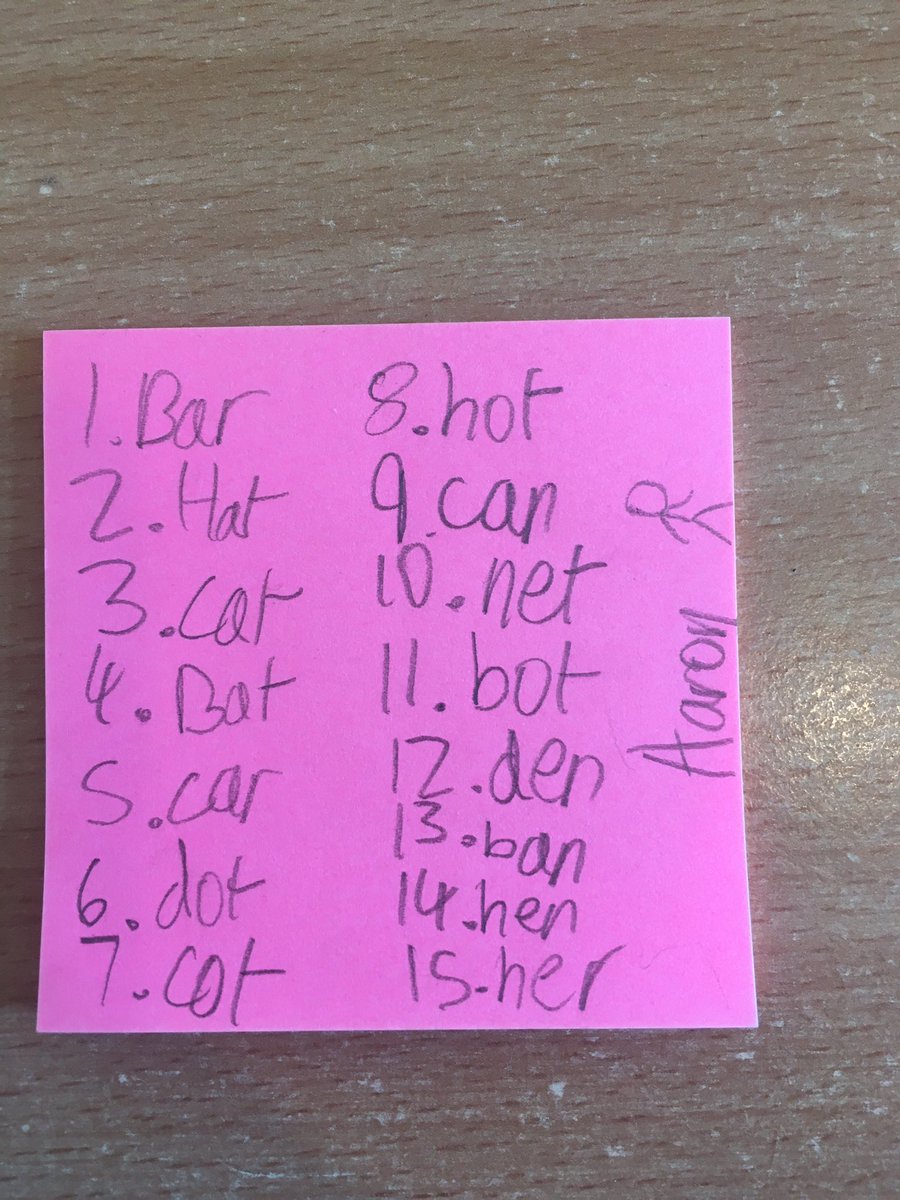 1. Bar
2. Hat
3. cat
4. Bat
5. car
6. dot
7. cot
8. hot
9. can
10. net
11. bot
12. den
13. ban
14. hen
15. her
Aaron R